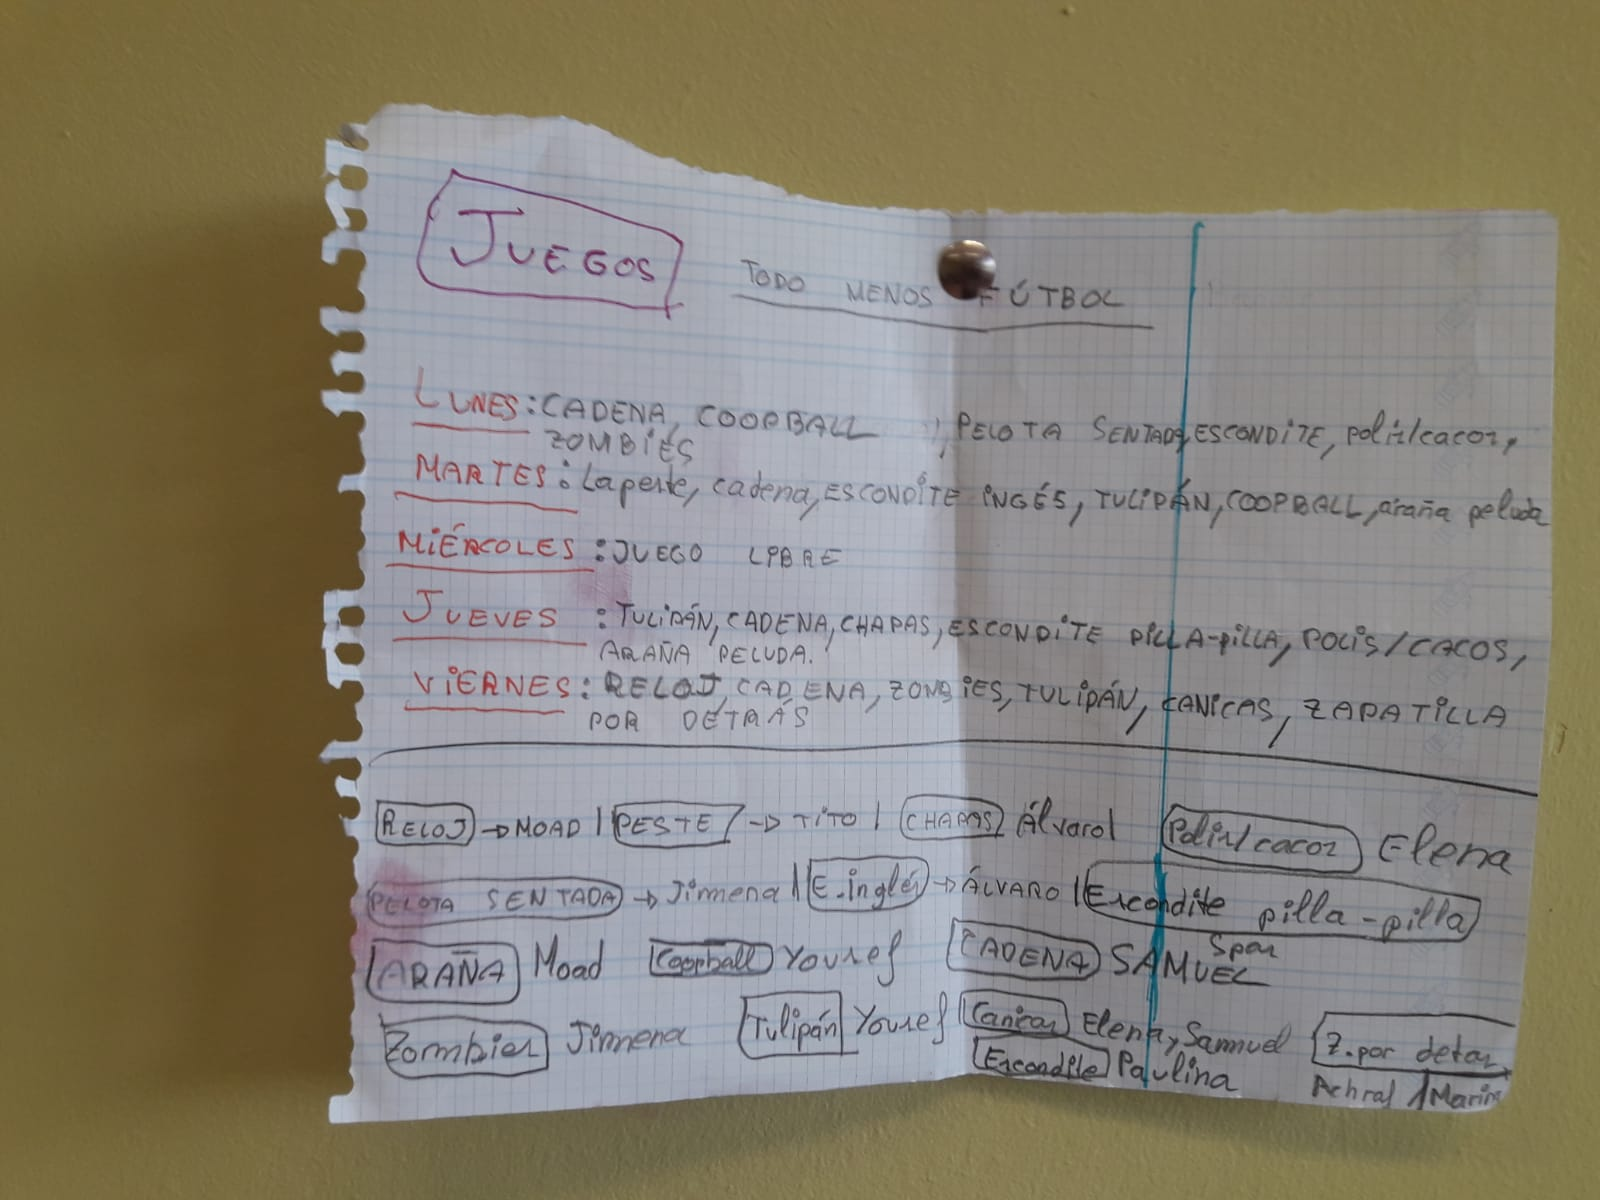 JUEGOS TODO MENOS FÚTBOL
LUNES: CADENA, COOPBALL, PELOTA SENTADA, ESCONDITE, polis/cacos,
ZOMBIES
MARTES: La peste, cadena, ESCONDITE INGÉS, TULIPÁN, COOPBALL, araña peluda
MIÉRCOLES: JUEGO LIBRE
JUEVES: TULIPÁN, CADENA, CHAPAS, ESCONDITE PILLA-PILLA, POLIS/CACOS,
ARAÑA PELUDA.
VIERNES: RELOJ, CADENA, ZOMBIES, TULIPÁN, CANICAS, ZAPATILLA
POR DETRÁS
RELOJ → MOAD | PESTE → TITO | CHAPAS Álvaro | Polis/cacos Elena
PELOTA SENTADA → Jimena | E. inglés → ÁLVARO | Escondite pilla-pilla
ARAÑA Moad Coopball Yousef CADENA SAMUEL
Zombies Jimena Tulipán Yousef Canicas Elena, Samuel Z. por detas
Escondite Paulina Achraf / Marina